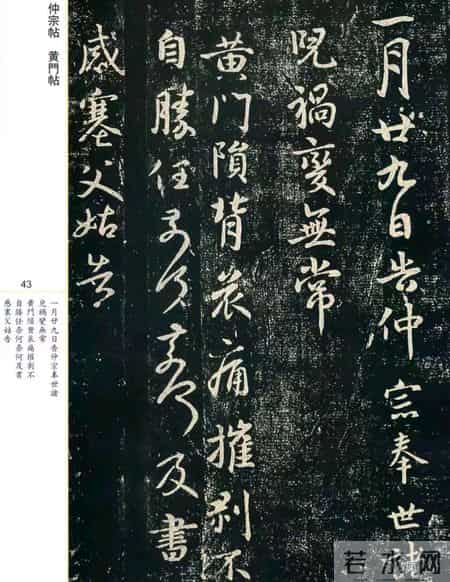 一月廿九日告仲宗奉世諸
兒禍變無常
黄門隕背哀痛摧剥不
自勝任奈何奈何及書
感塞父姑告
仲宗帖 黄門帖
43
一月廿九日告仲宗奉世諸
兒禍變無常
黄門隕背哀痛摧剥不
自勝任奈何奈何及書
感塞父姑告
若水网